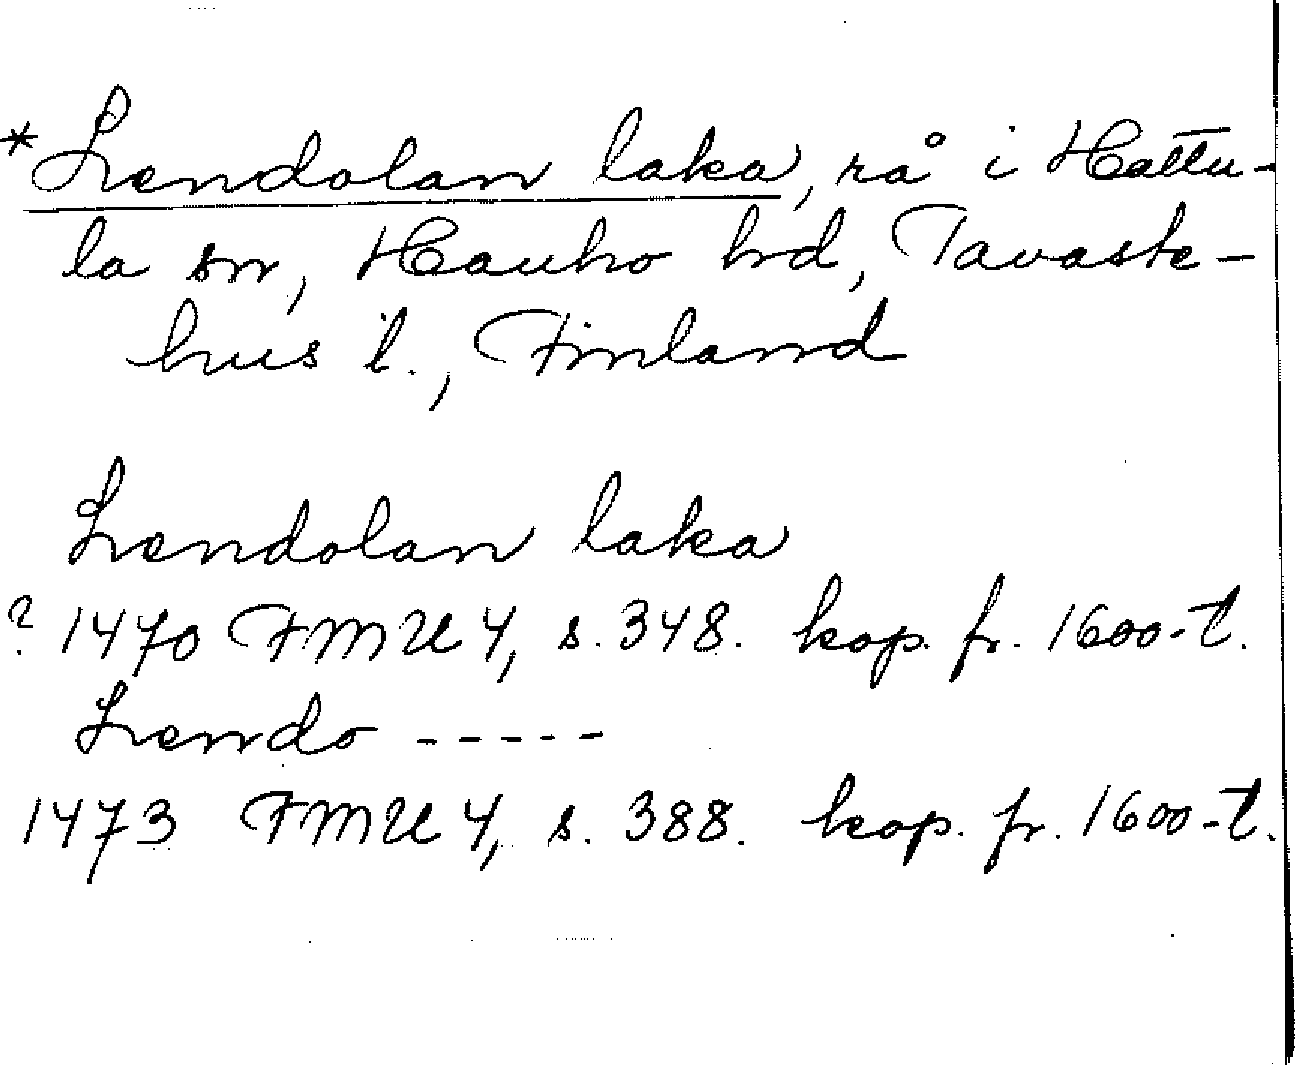 *Lendolan laka, rå i Hattu-
la sn, Hauho hd, Tavaste-
hus l., Finland
Lendolan laka
? 1470 FMU 4, s. 348. kop. fr. 1600-t.
Lendo -----
1473 FMU 4, s. 388. kop. fr. 1600-t.